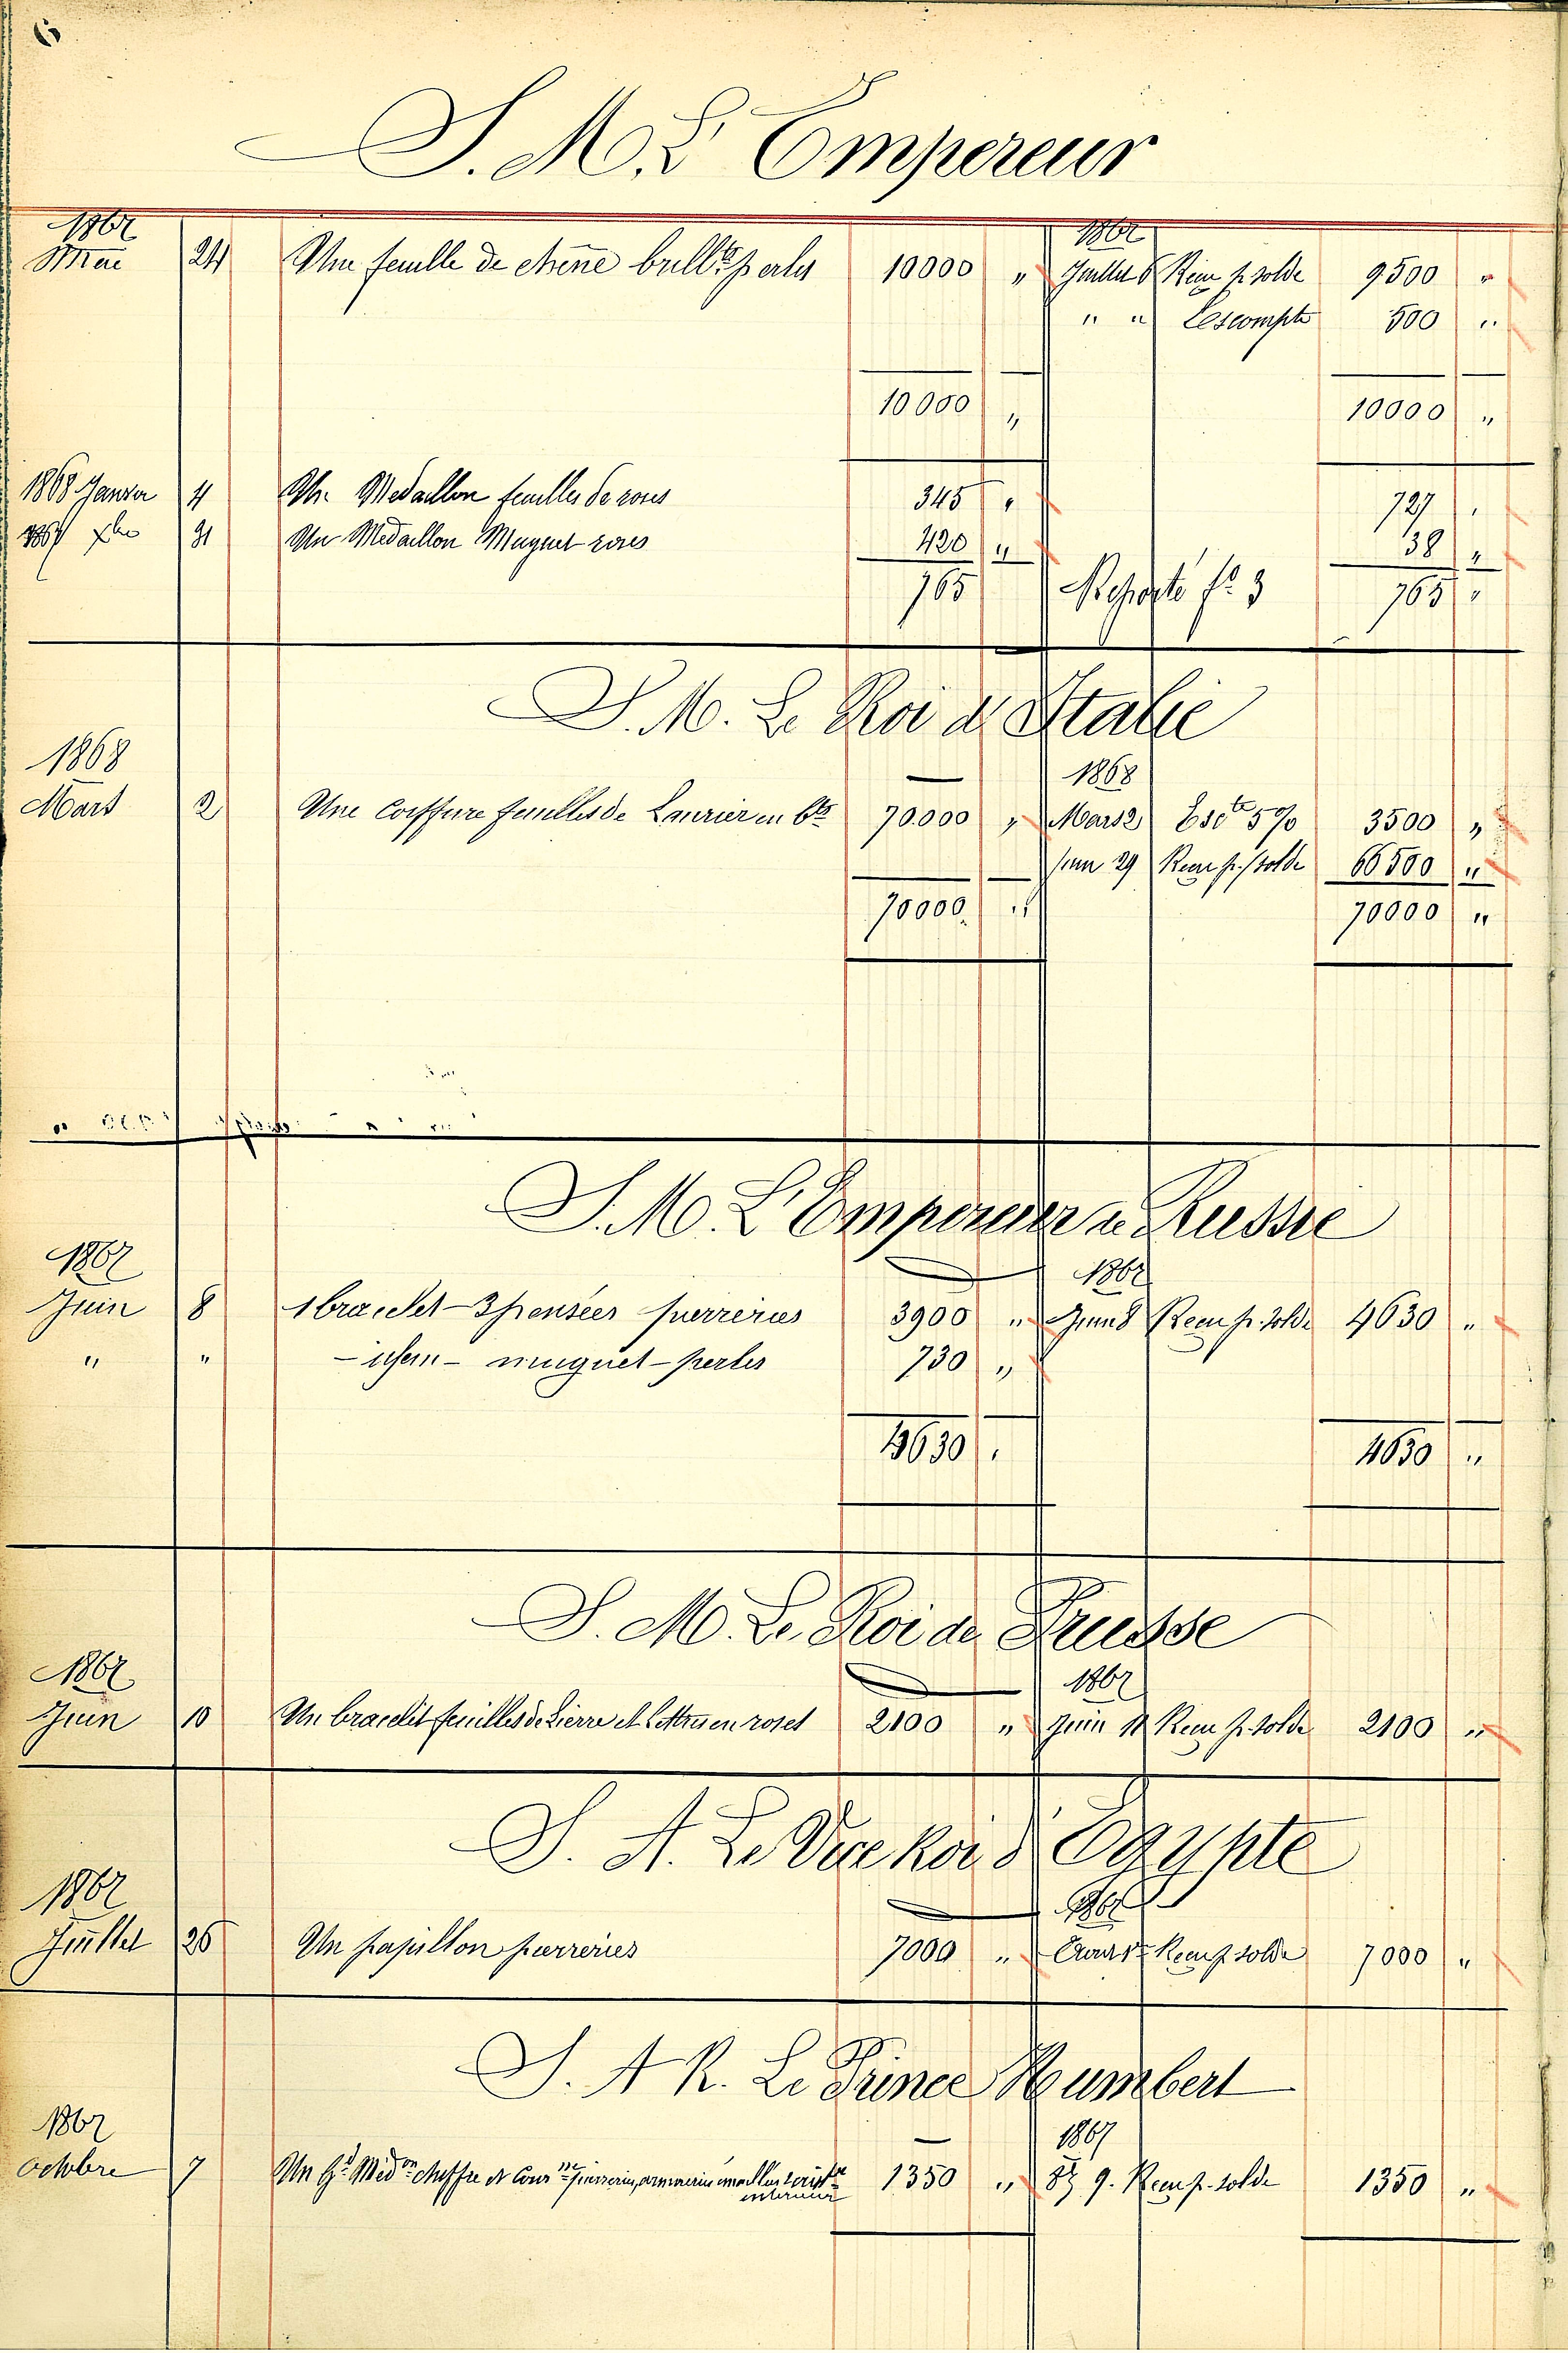 6
S. M. L'Empereur
1867 1867
Mai 24 Une feuille de chêne brillts perles 10000 " Juillet 6 Reçu p. solde 9500 "
" " Escompte 500 "
10000 " 10000 "
1868 Janvier 4 Un Medaillon feuilles de roses 345 " 727 "
1867 xbre 31 Un Medaillon Muguet roses 420 " 38 "
765 Reporté fo 3 765 "
S. M. Le Roi d'Italie
1868 1868
Mars 2 Une Coiffure feuilles de Laurier en bts 70.000 " Mars 2 Escte 5% 3500 "
Juin 29 Reçu p. solde 66500 "
70000 " 70000 "
S. M. L'Empereur de Russie
1867 1867
Juin 8 1 bracelet - 3 pensées pierreries 3900 " Juin 8 Reçu p. solde 4630 "
" " - idem - muguet - perles 730 "
4630 " 4630 "
S. M. Le Roi de Prusse
1867 1867
Juin 10 Un bracelet feuilles de Lierre et Lettres en roses 2100 " Juin 11 Reçu p. solde 2100 "
S. A. Le Vice Roi d'Egypte
1867 1867
Juillet 26 Un papillon pierreries 7000 " Reçu p. solde 7000 "
S. A R. Le Prince Humbert
1867 1867
Octobre 7 Un Gd Médon chiffre et Couronne pierreries, armoiries 1350 " 8bre 9. Reçu p. solde 1350 "
interieur